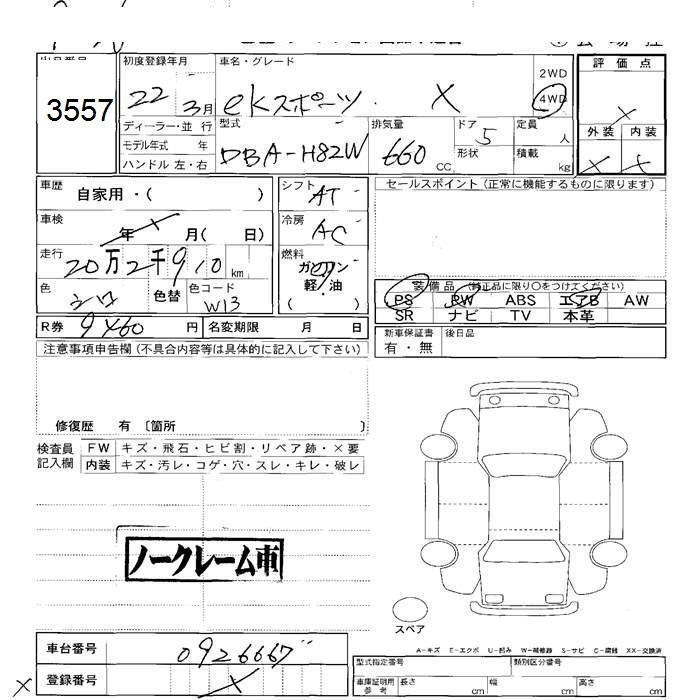 3557
初度登録年月 車名・グレード
22 3月 eKスポーツ X 2WD 4WD
評価点
X
ディーラー・並行 型式 排気量 ドア 定員
モデル年式 年 DBA-H82W 660 CC 5 人
ハンドル 左・右 形状 積載 kg
外装 内装
X X
車歴 自家用・( ) シフト AT
車検 年 月( 日) 冷房 AC
走行 20万2千910km 燃料 ガソリン 軽/油 ( )
色 シロ 色替 色コード W13
セールスポイント(正常に機能するものに限ります)
装備品 (純正品に限り○をつけてください)
PS PW ABS エアB AW
SR ナビ TV 本革
R券 9460 円 名変期限 月 日
新車保証書 後日品
有・無
注意事項申告欄(不具合内容等は具体的に記入して下さい)
修復歴 有 〔箇所 〕
検査員記入欄
FW キズ・飛石・ヒビ割・リペア跡・×要
内装 キズ・汚レ・コゲ・穴・スレ・キレ・破レ
ノークレーム車
スペア
A-キズ E-エクボ U-凹み W-補修跡 S-サビ C-腐蝕 XX-交換済
車台番号 0926667
登録番号 X
X
型式指定番号 類別区分番号
車庫証明用参考 長さ cm 幅 cm 高さ cm